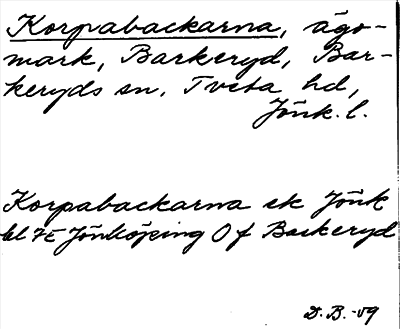 Korpabackarna, ägo-
mark, Barkeryd, Bar-
keryds sn, Tveta hd,
Jönk. l.
Korpabackarna ek Jönk
bl 7E Jönköping Of Barkeryd
D. B. -09